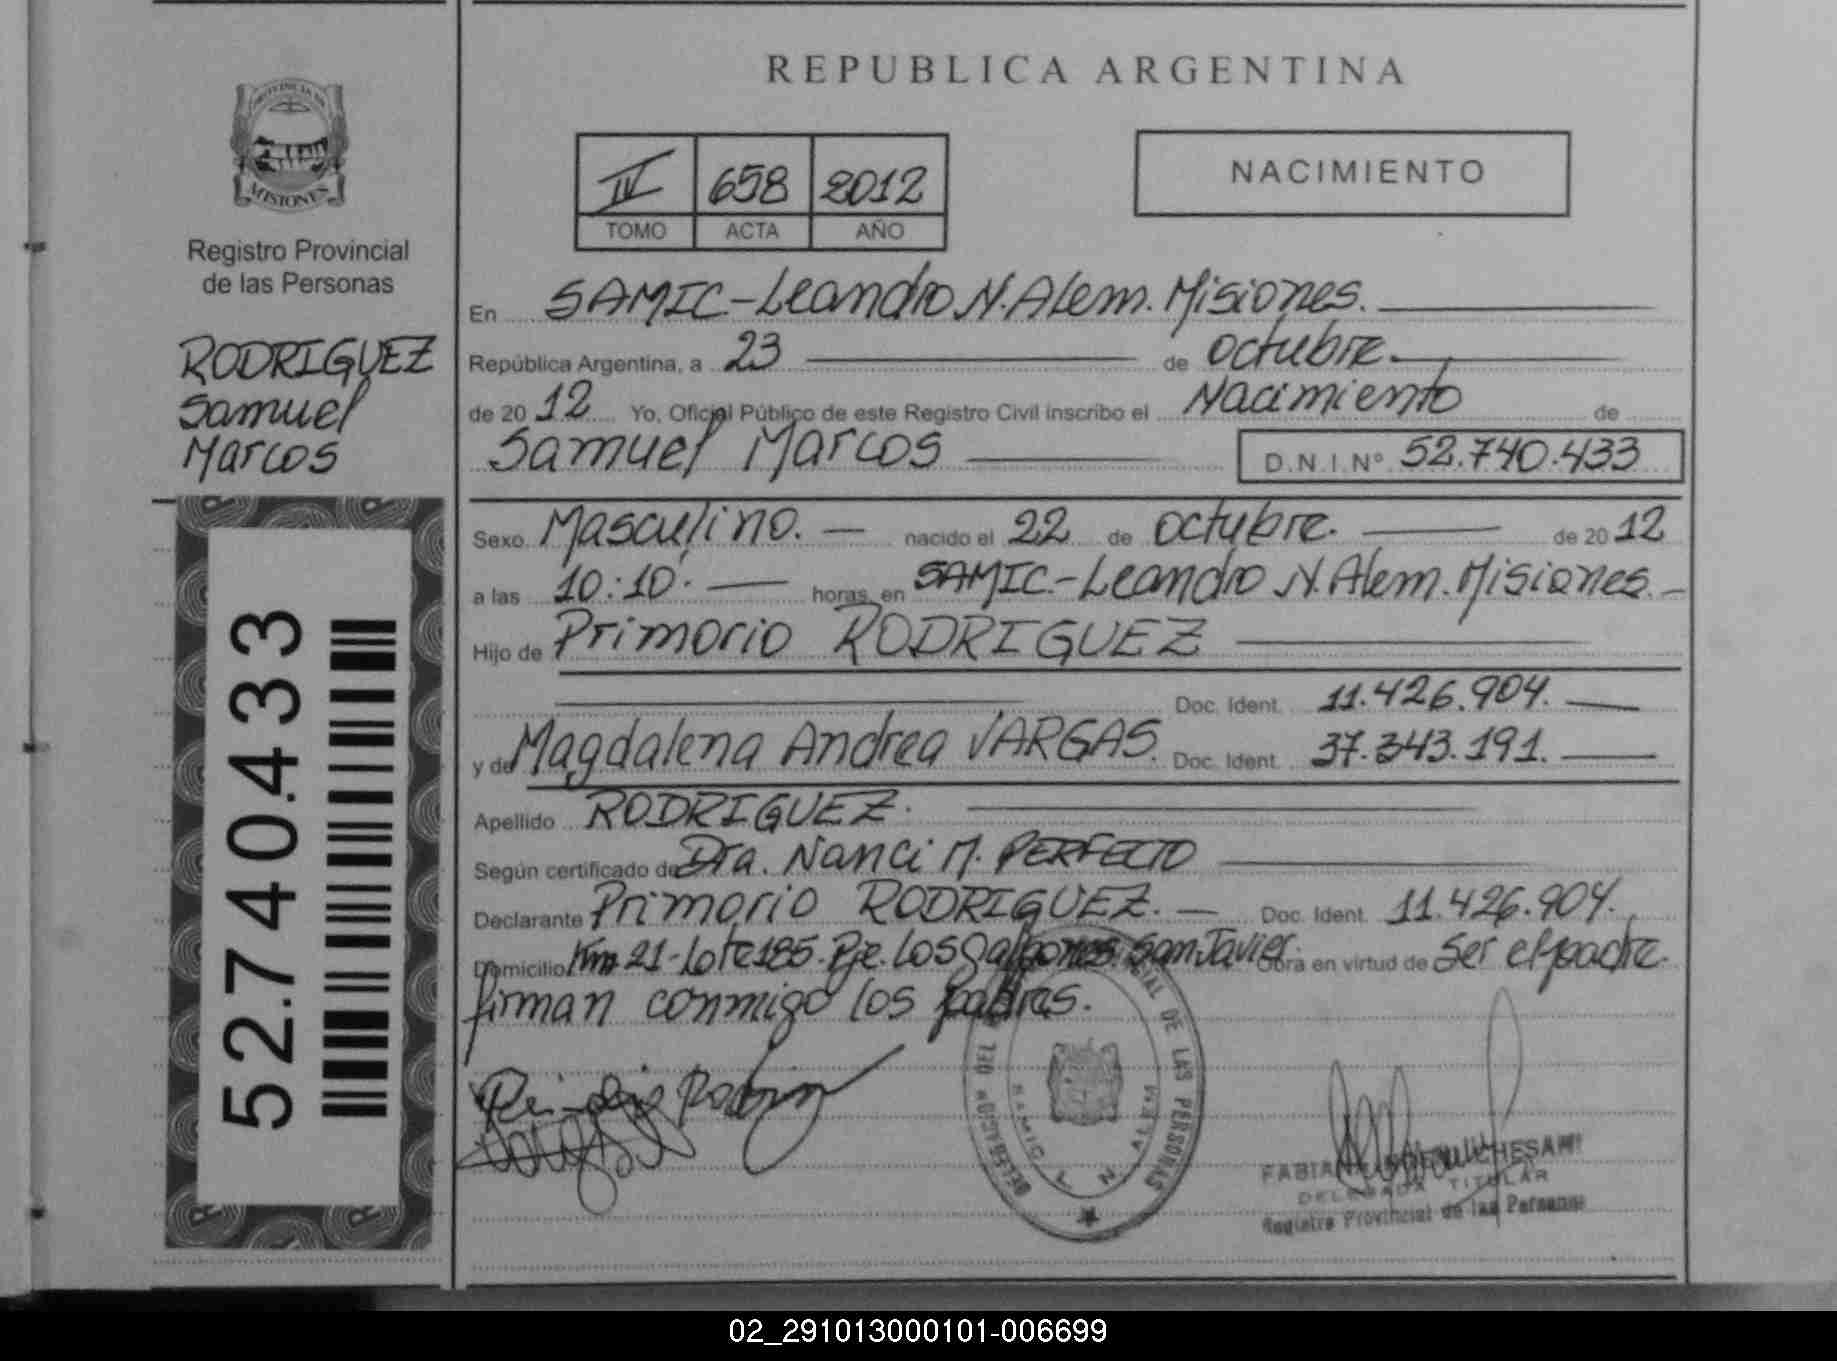 PROVINCIA DE
MISIONES
Registro Provincial
de las Personas
RODRIGUEZ
Samuel
Marcos
52.740.433
REPUBLICA ARGENTINA
IV 658 2012
TOMO ACTA AÑO
NACIMIENTO
En SAMIC-Leandro N. Alem. Misiones.
República Argentina, a 23 de octubre.
de 20 12 Yo, Oficial Público de este Registro Civil inscribo el Nacimiento de
Samuel Marcos D.N.I.Nº 52.740.433
Sexo Masculino. nacido el 22 de octubre. de 20 12
a las 10:10. horas, en SAMIC.-Leandro N. Alem. Misiones.
Hijo de Primorio RODRIGUEZ
Doc. Ident. 11.426.904.
y de Magdalena Andrea VARGAS. Doc. Ident. 37.343.191.
Apellido RODRIGUEZ.
Según certificado de Dra. Nanci M. PERFECTO
Declarante Primorio RODRIGUEZ. Doc. Ident. 11.426.904.
Domicilio Km 21-Lote 185. Pje. Los Galpones. San Javier. Obra en virtud de Ser el padre.
firman conmigo los padres.
DELEGACION DEL DE LAS PERSONAS
SAMIC L. N. ALEM
CHESANI
DELEGADA TITULAR
Registro Provincial de las Personas
02_291013000101-006699